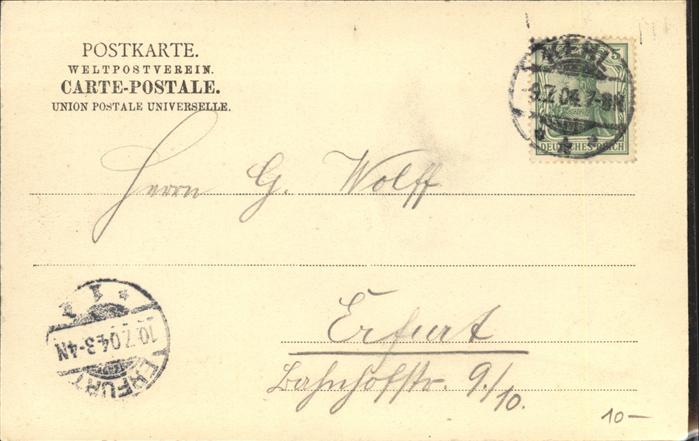 POSTKARTE.
WELTPOSTVEREIN.
CARTE-POSTALE.
UNION POSTALE UNIVERSELLE.
KEHL
9.7.04.7-8N
5
DEUTSCHES REICH
Herrn G. Wolff
Erfurt
Bahnhofstr. 9/10.
ERFURT
10.7.04.3-4N
10-